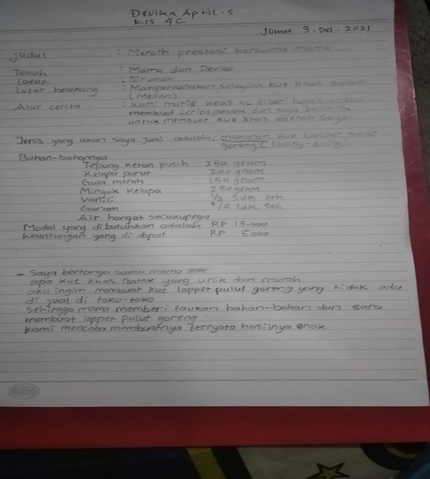 Devika April.S
Kls 4C
Jumat 3-Des-2021
Judul : Meraih prestasi bersama mama
Tokoh : Mama dan Devika
Latar : Dirumah
Latar belakang : sebagian kue khas
(Medan)
Alur cerita : Kami murid kelas 4C diberi tugas
membuat cerita dan saya
untuk membuat kue khas daerah saya
Jenis yang akan saya jual adalah: kue lapper pulut
goreng
Bahan-bahannya
Tepung ketan putih 250 gram
Kelapa parut 200 gram
Gula merah 150 gram
Minyak kelapa 250 gram
Vanili 1/2 sdk teh
Garam 1/4 sdk teh
Air hangat secukupnya
Modal yang dibutuhkan adalah RP 15.000
Keuntungan yang di dapat RP 5000
- Saya bertanya sama mama
apa kue khas Batak yang unik dan murah
aku ingin membuat kue lapper pulut goreng yang tidak ada
di jual di toko-toko
Sehingga mama memberi taukan bahan-bahan dan cara
membuat lapper pulut goreng
Kami mencoba membuatnya ternyata hasilnya enak